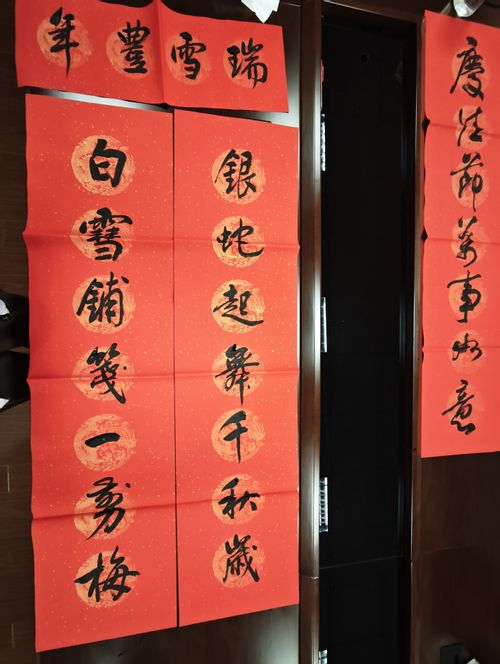 瑞雪豐年
慶佳節萬事如意
銀蛇起舞千秋歲
白雪鋪箋一剪梅